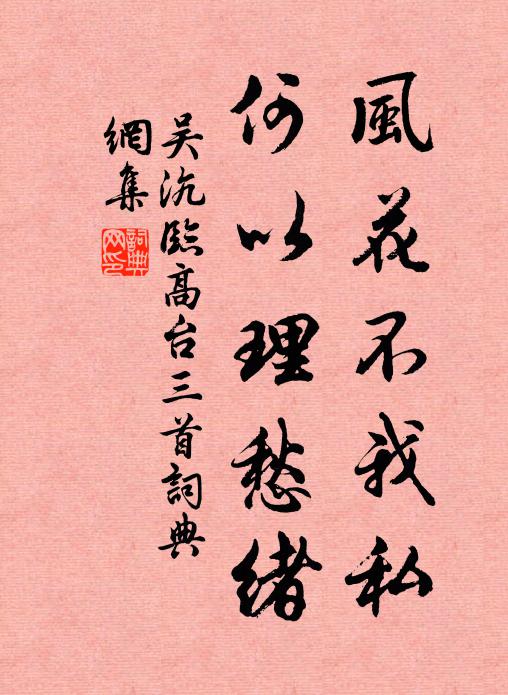 風花不我私
何以理愁緒
吴沉臨高台三首詞典
網集
詞典
網印